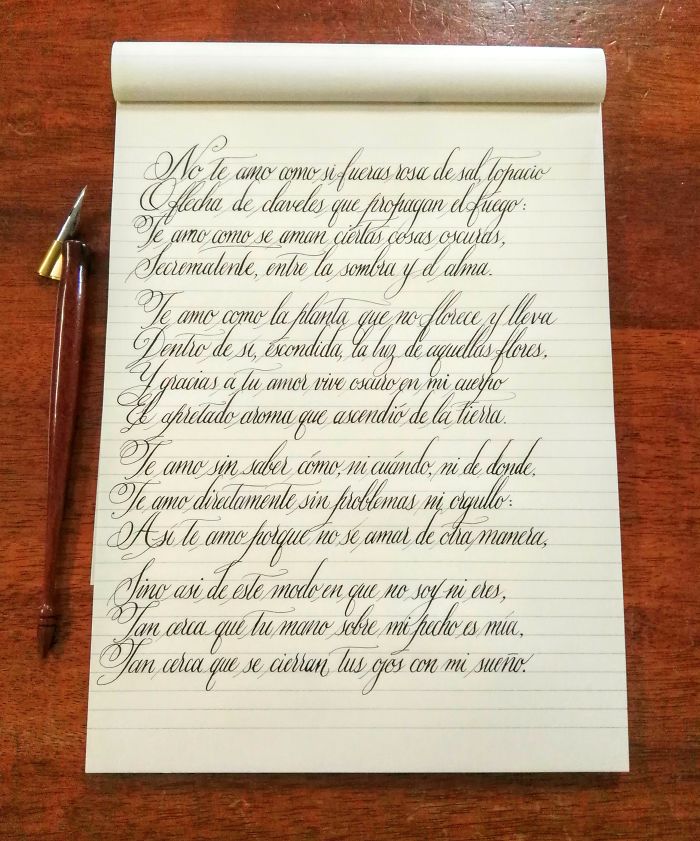 No te amo como si fueras rosa de sal, topacio
O flecha de claveles que propagan el fuego:
Te amo como se aman ciertas cosas oscuras,
Secrematente, entre la sombra y el alma.
Te amo como la planta que no florece y lleva
Dentro de sí, escondida, la luz de aquellas flores,
Y gracias a tu amor vive oscuro en mi cuerpo
El apretado aroma que ascendió de la tierra.
Te amo sin saber cómo, ni cuándo, ni de donde,
Te amo directamente sin problemas ni orgullo:
Así te amo porque no sé amar de otra manera,
Sino así de este modo en que no soy ni eres,
Tan cerca que tu mano sobre mi pecho es mía,
Tan cerca que se cierran tus ojos con mi sueño.